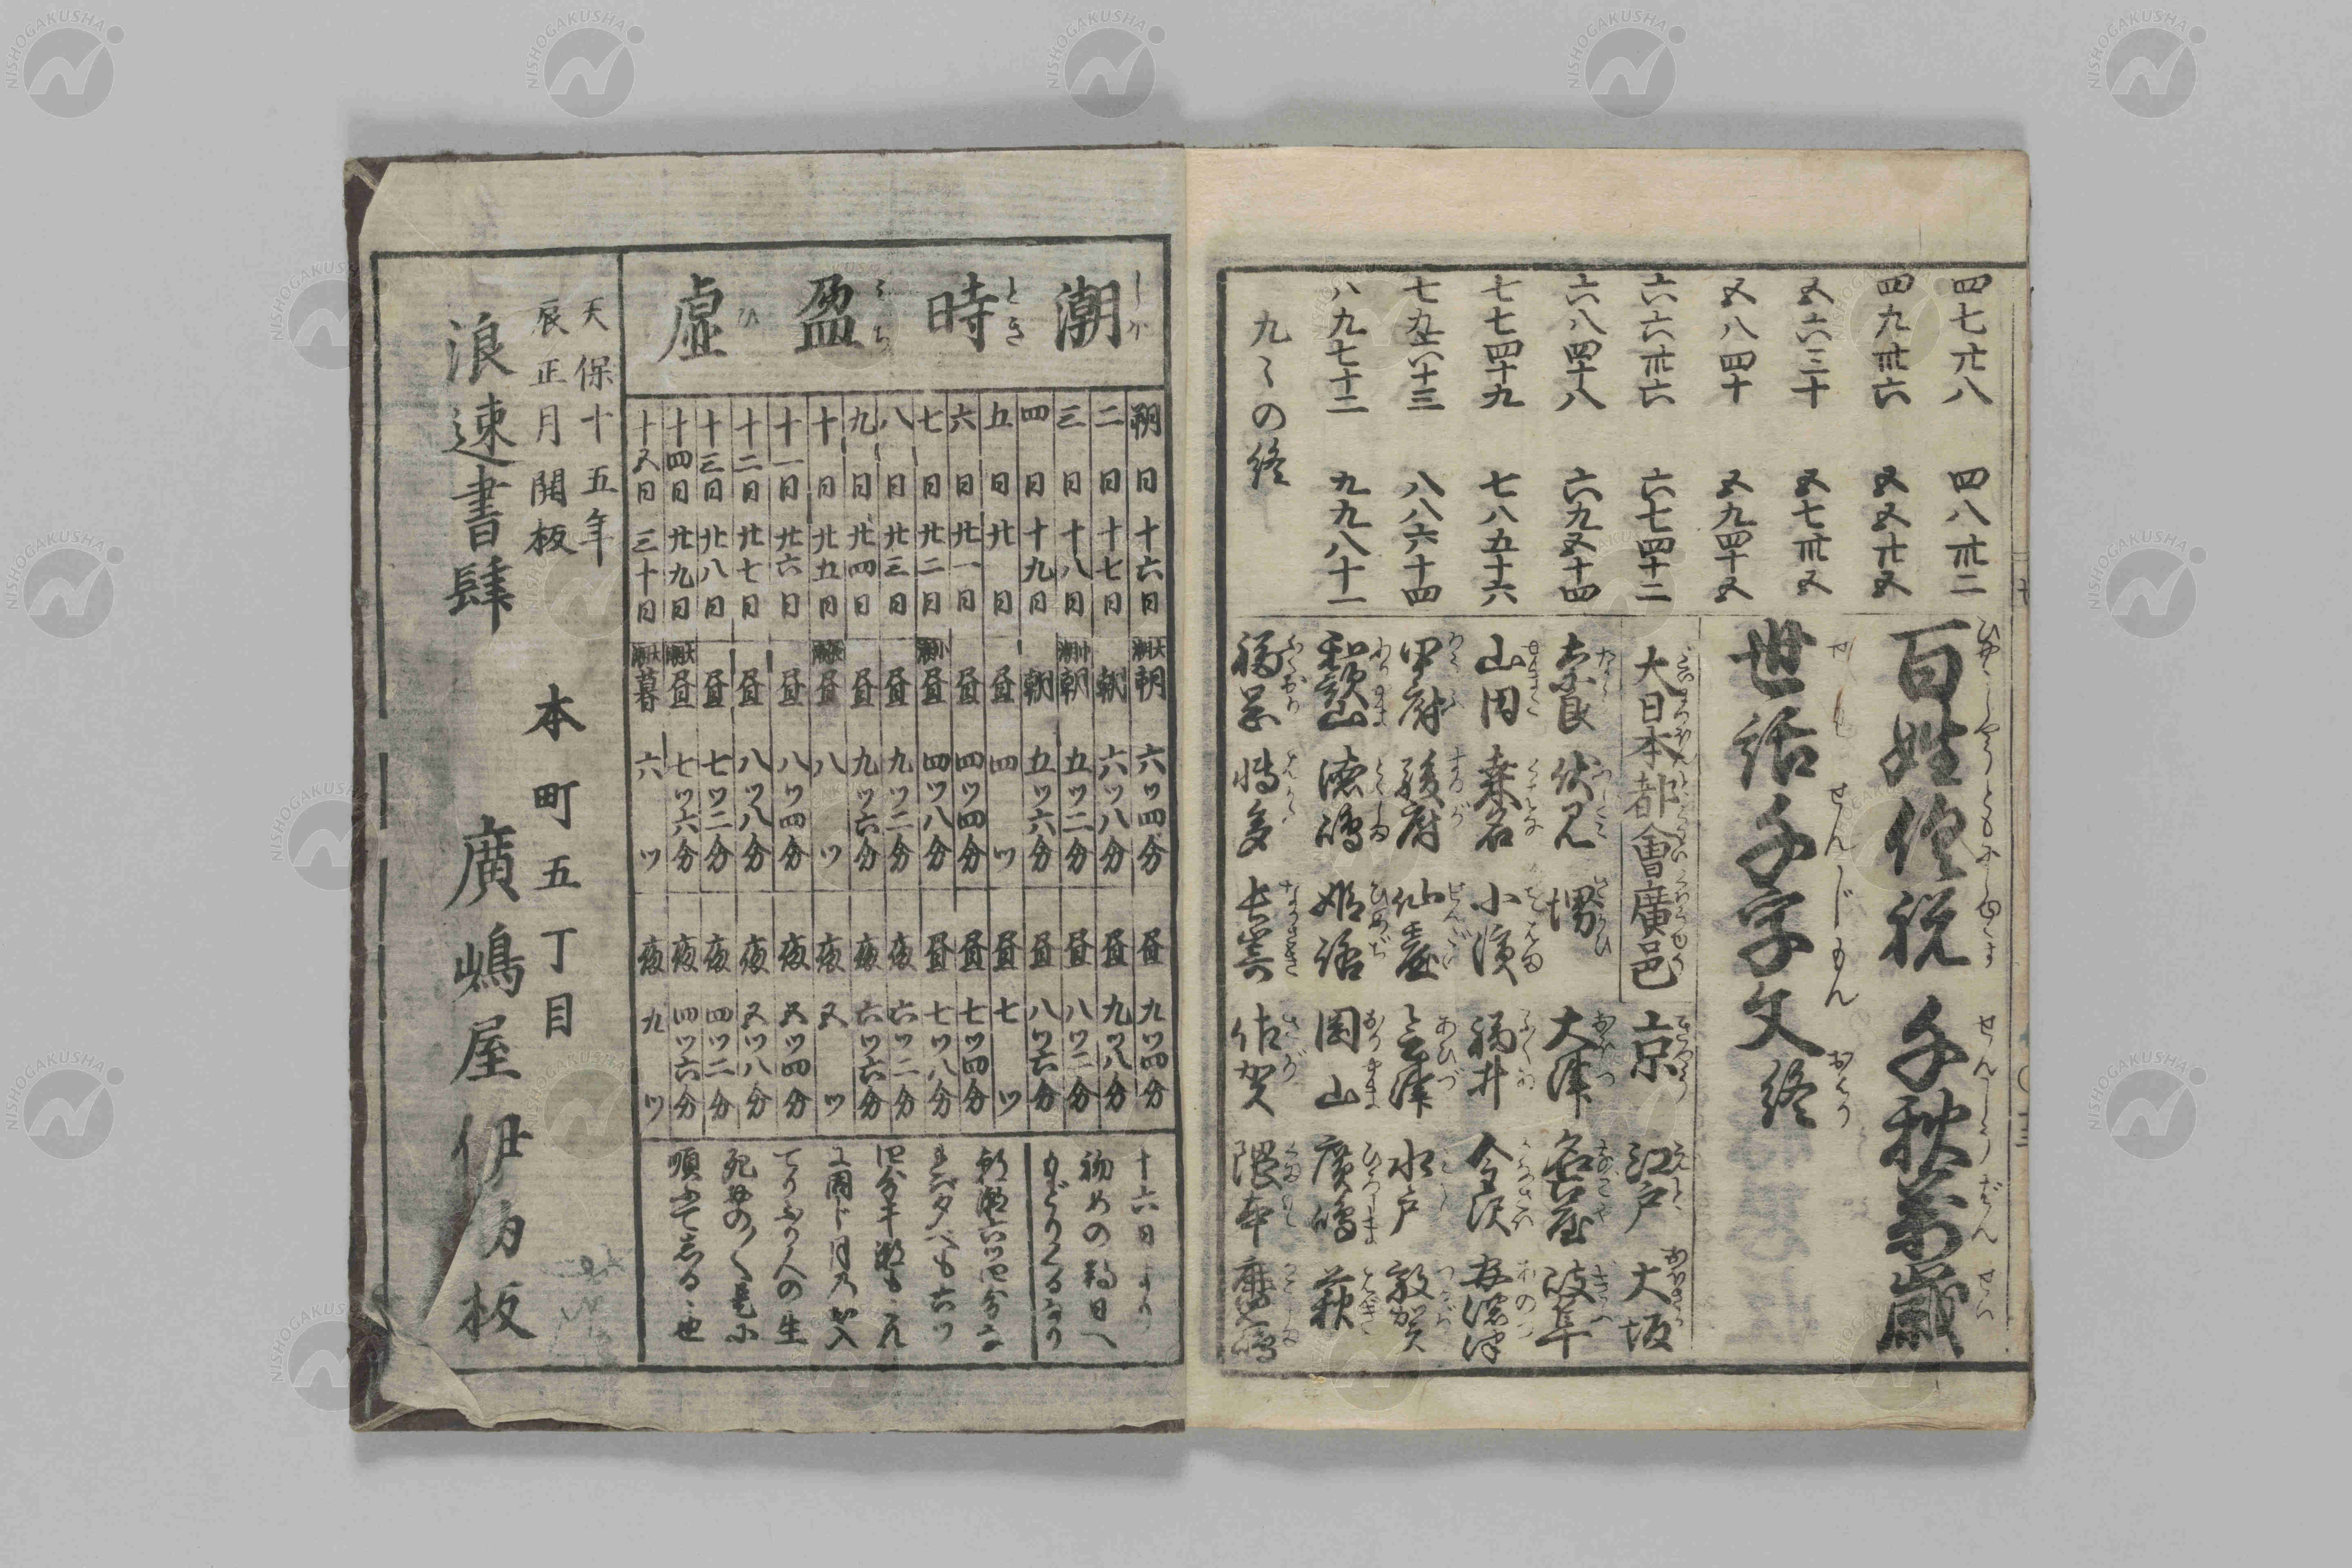 四七廿八　四八卅二
四九卅六　五五廿五
五六三十　五七卅五
五八四十　五九四十五
六六卅六　六七四十二
六八四十八　六九五十四
七七四十九　七八五十六
七九六十三　八八六十四
八九七十二　九九八十一
九〻の終
千秋萬歳
せんしうばんぜい
世話千字文終
せわせんじもんおわり
大日本都會廣邑
京　江戸　大坂
奈良　伏見　堺　大津　名古屋　岐阜
山田　桑名　小濱　福井　金沢
甲府　駿府　仙臺　会津　水戸　敦賀
和歌山　徳嶋　姫路　岡山　廣嶋　萩
福岡　博多　長崎　佐賀　隈本
潮時盈虚
朔日　十六日　大潮　朝　六ツ四分　昼　九ツ四分
二日　十七日　朝　六ツ八分　昼　九ツ八分
三日　十八日　朝　五ツ二分　昼　八ツ二分
四日　十九日　朝　五ツ六分　昼　八ツ六分
五日　廿日　昼　四ツ　昼　七ツ
六日　廿一日　昼　四ツ四分　昼　七ツ四分
七日　廿二日　小潮　昼　四ツ八分　昼　七ツ八分
八日　廿三日　昼　九ツ二分　夜　六ツ二分
九日　廿四日　昼　九ツ六分　夜　六ツ六分
十日　廿五日　長潮　昼　八ツ　夜　五ツ
十一日　廿六日　昼　八ツ四分　夜　五ツ四分
十二日　廿七日　昼　八ツ八分　夜　五ツ八分
十三日　廿八日　昼　七ツ二分　夜　四ツ二分
十四日　廿九日　大潮　昼　七ツ六分　夜　四ツ六分
十五日　三十日　大潮　暮　六ツ　夜　九ツ
十六日より
初めの朔日へ
もどりくるなり
天保十五年
辰正月開板
本町五丁目
浪速書肆　廣嶋屋伊助板
NISHOGAKUSHA